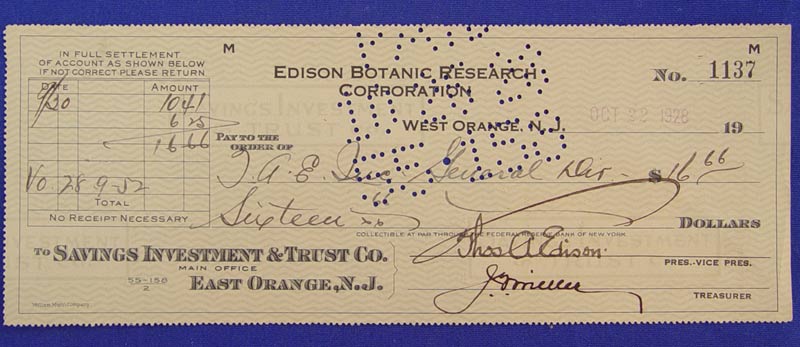 IN FULL SETTLEMENT
OF ACCOUNT AS SHOWN BELOW
IF NOT CORRECT PLEASE RETURN
M
M
EDISON BOTANIC RESEARCH
CORPORATION
No. 1137
DATE AMOUNT
9/30 1041
6 25
16 66
WEST ORANGE, N.J. OCT 22 1928 19
PAY TO THE
ORDER OF T. A. E. Inc. General Div. $ 16 66
Vo. 28 9-52
TOTAL
NO RECEIPT NECESSARY
Sixteen 66 DOLLARS
COLLECTIBLE AT PAR THROUGH FEDERAL RESERVE BANK OF NEW YORK
TO SAVINGS INVESTMENT & TRUST CO.
MAIN OFFICE
55-158
2
EAST ORANGE, N.J.
Thos A Edison
PRES.-VICE PRES.
TREASURER